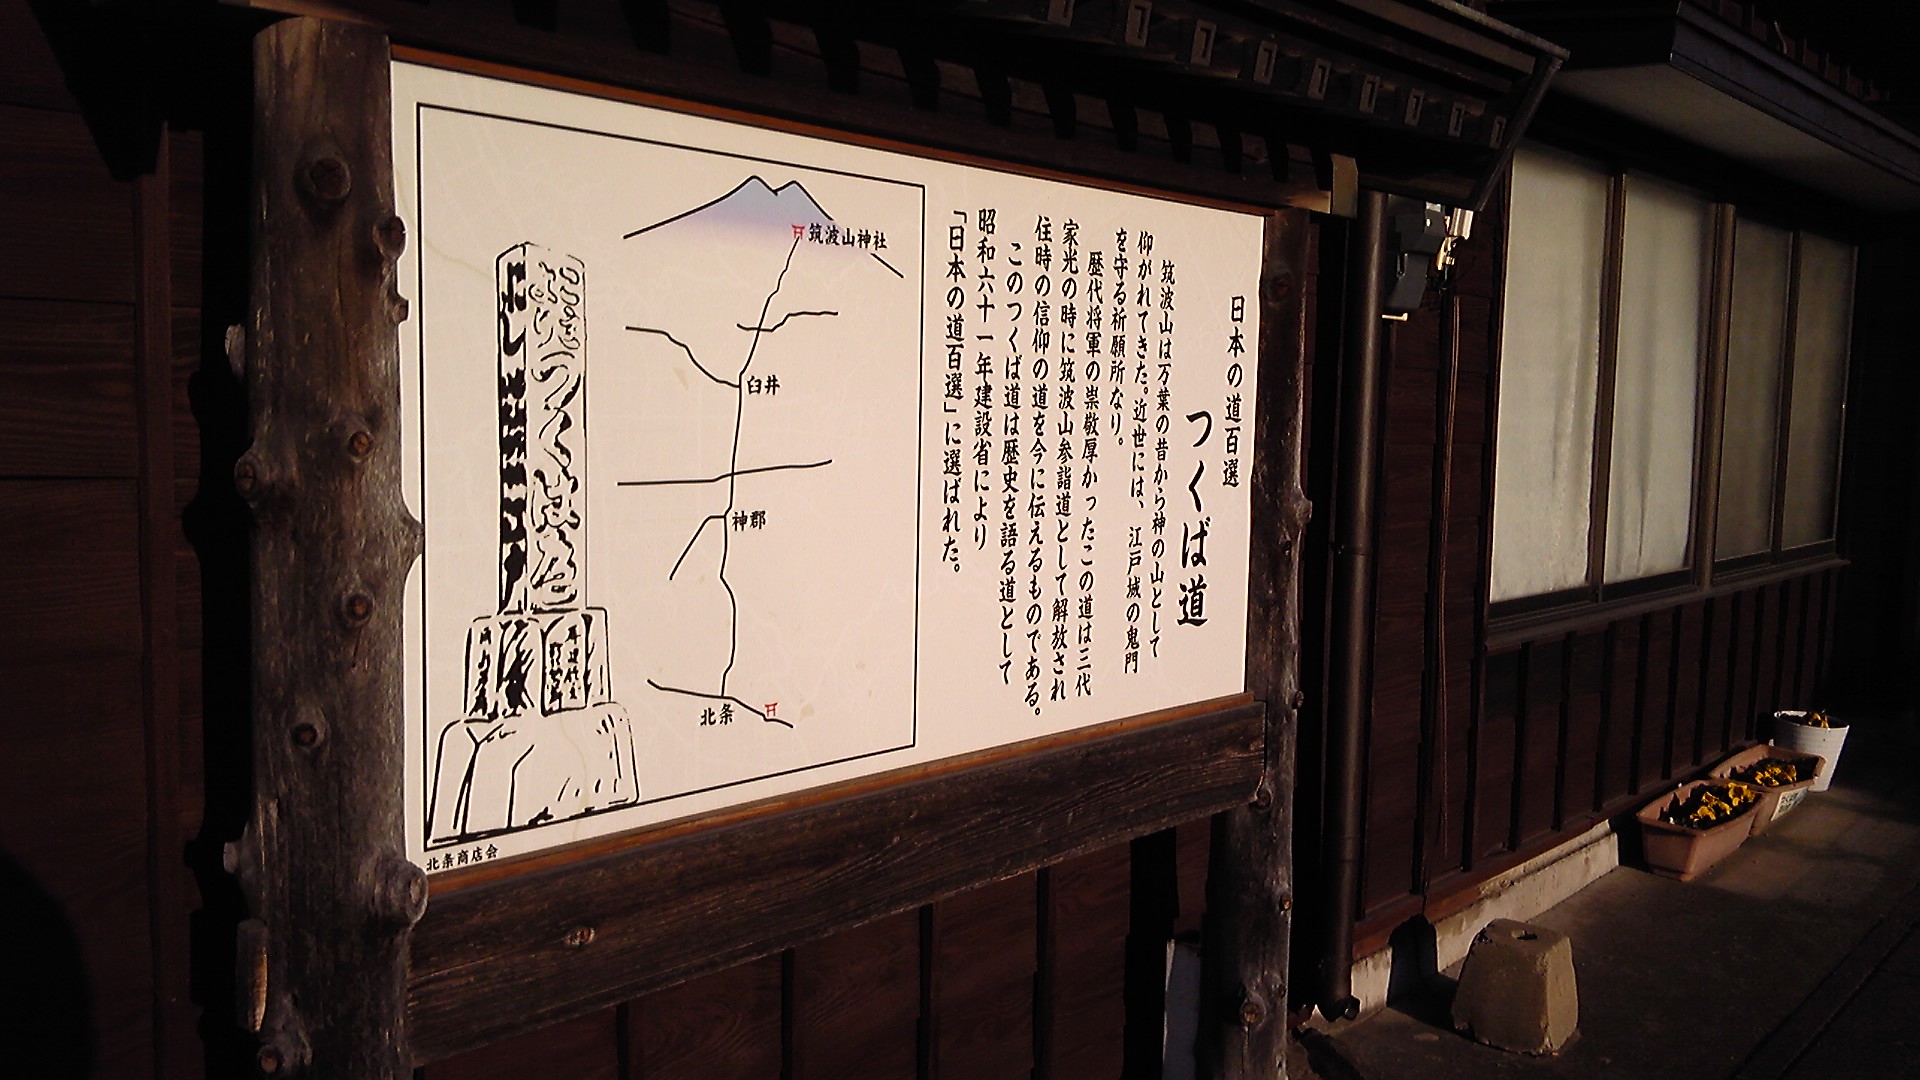 日本の道百選
つくば道
筑波山は万葉の昔から神の山として
仰がれてきた。近世には、江戸城の鬼門
を守る祈願所なり。
歴代将軍の崇敬厚かったこの道は三代
家光の時に筑波山参詣道として解放され
往時の信仰の道を今に伝えるものである。
このつくば道は歴史を語る道として
昭和六十一年建設省により
「日本の道百選」に選ばれた。
筑波山神社
臼井
神郡
北条
北条商店会